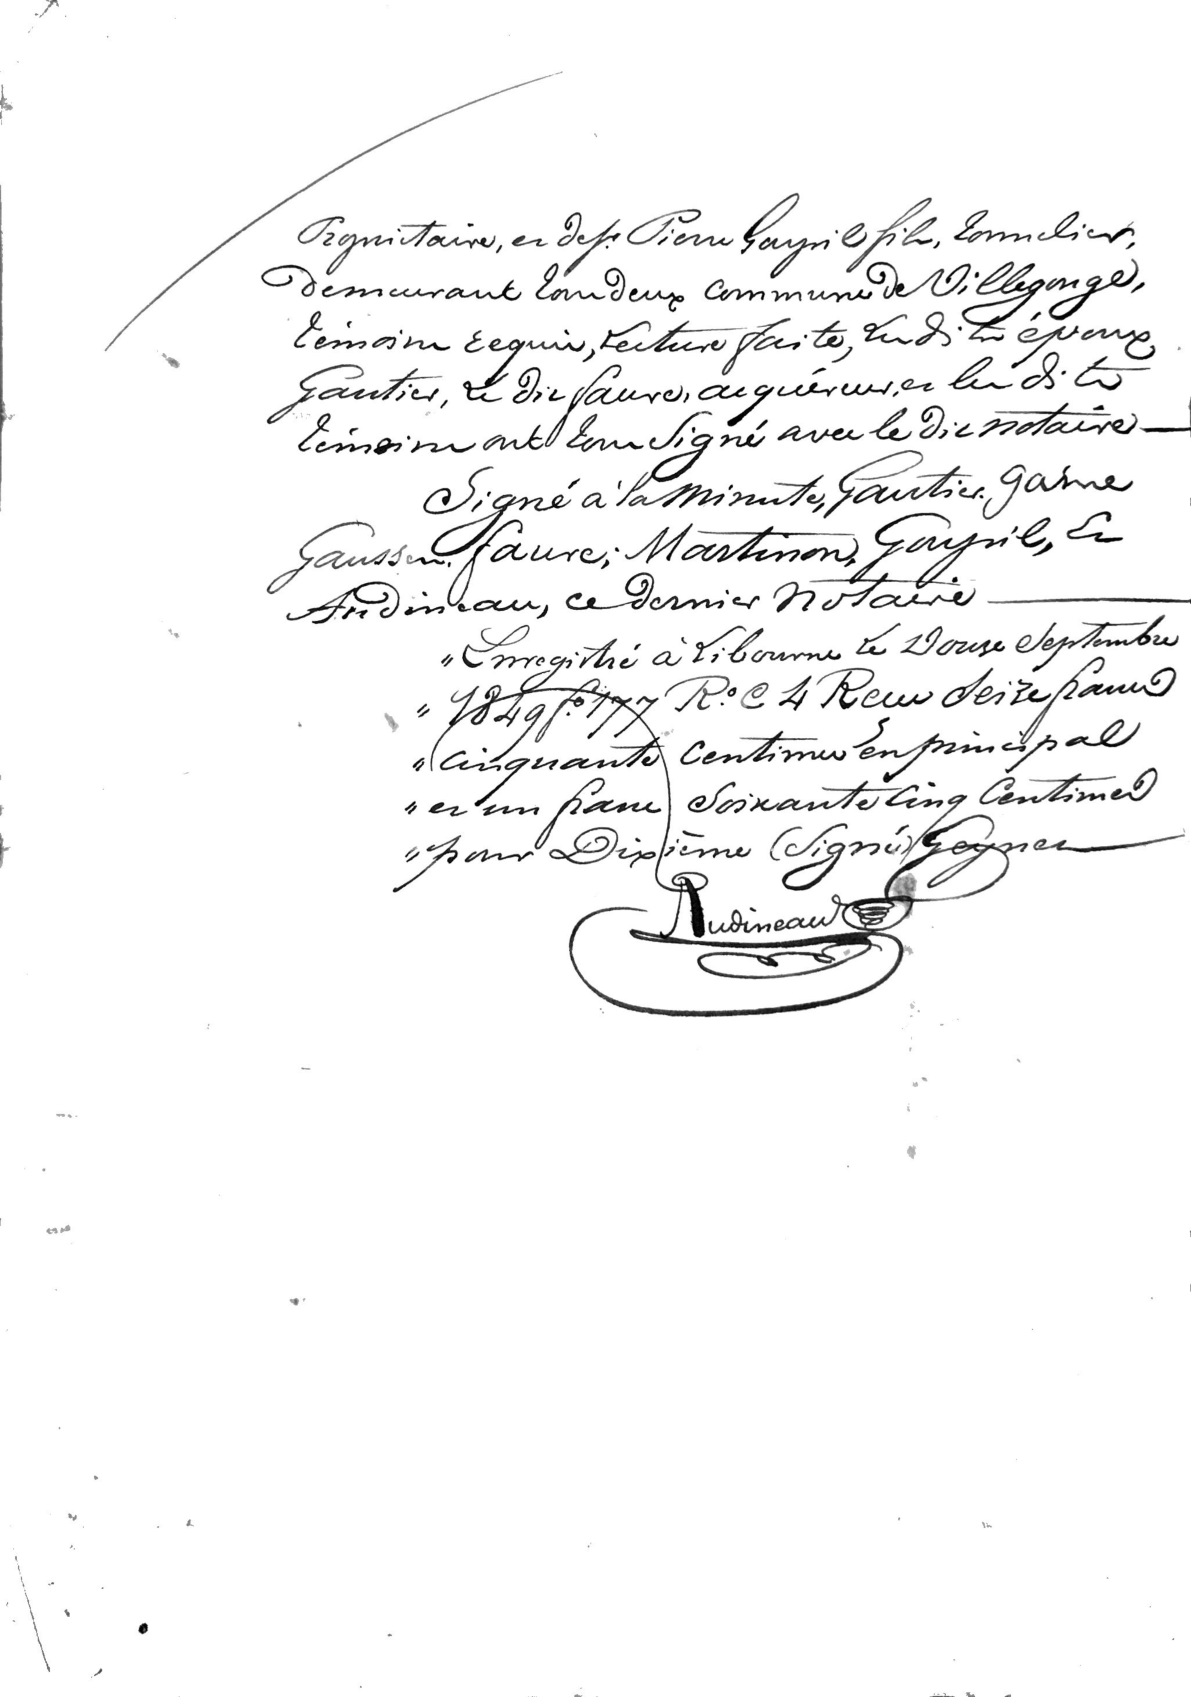 Propriétaire, et de sr. Pierre Goupil fils, tonnelier,
Demeurant tous deux commune de Villegouge,
témoins requis, Lecture faite, Les dits époux
Gautier, Le dit faure, acquéreur, et les dits
témoins ont tous Signé avec le dit notaire
Signé à la Minute, Gautier, Garne
Gaussen, faure, Martinon, Goupil, Et
Audineau, ce dernier Notaire
" Enregistré à Libourne Le Douze Septembre
" 1849 fo. 177 Ro. C 4 Reçu Seize francs
" cinquante Centimes en principal
" et un franc Soixante Cinq Centimes
" pour Dixième (Signé)
Audineau